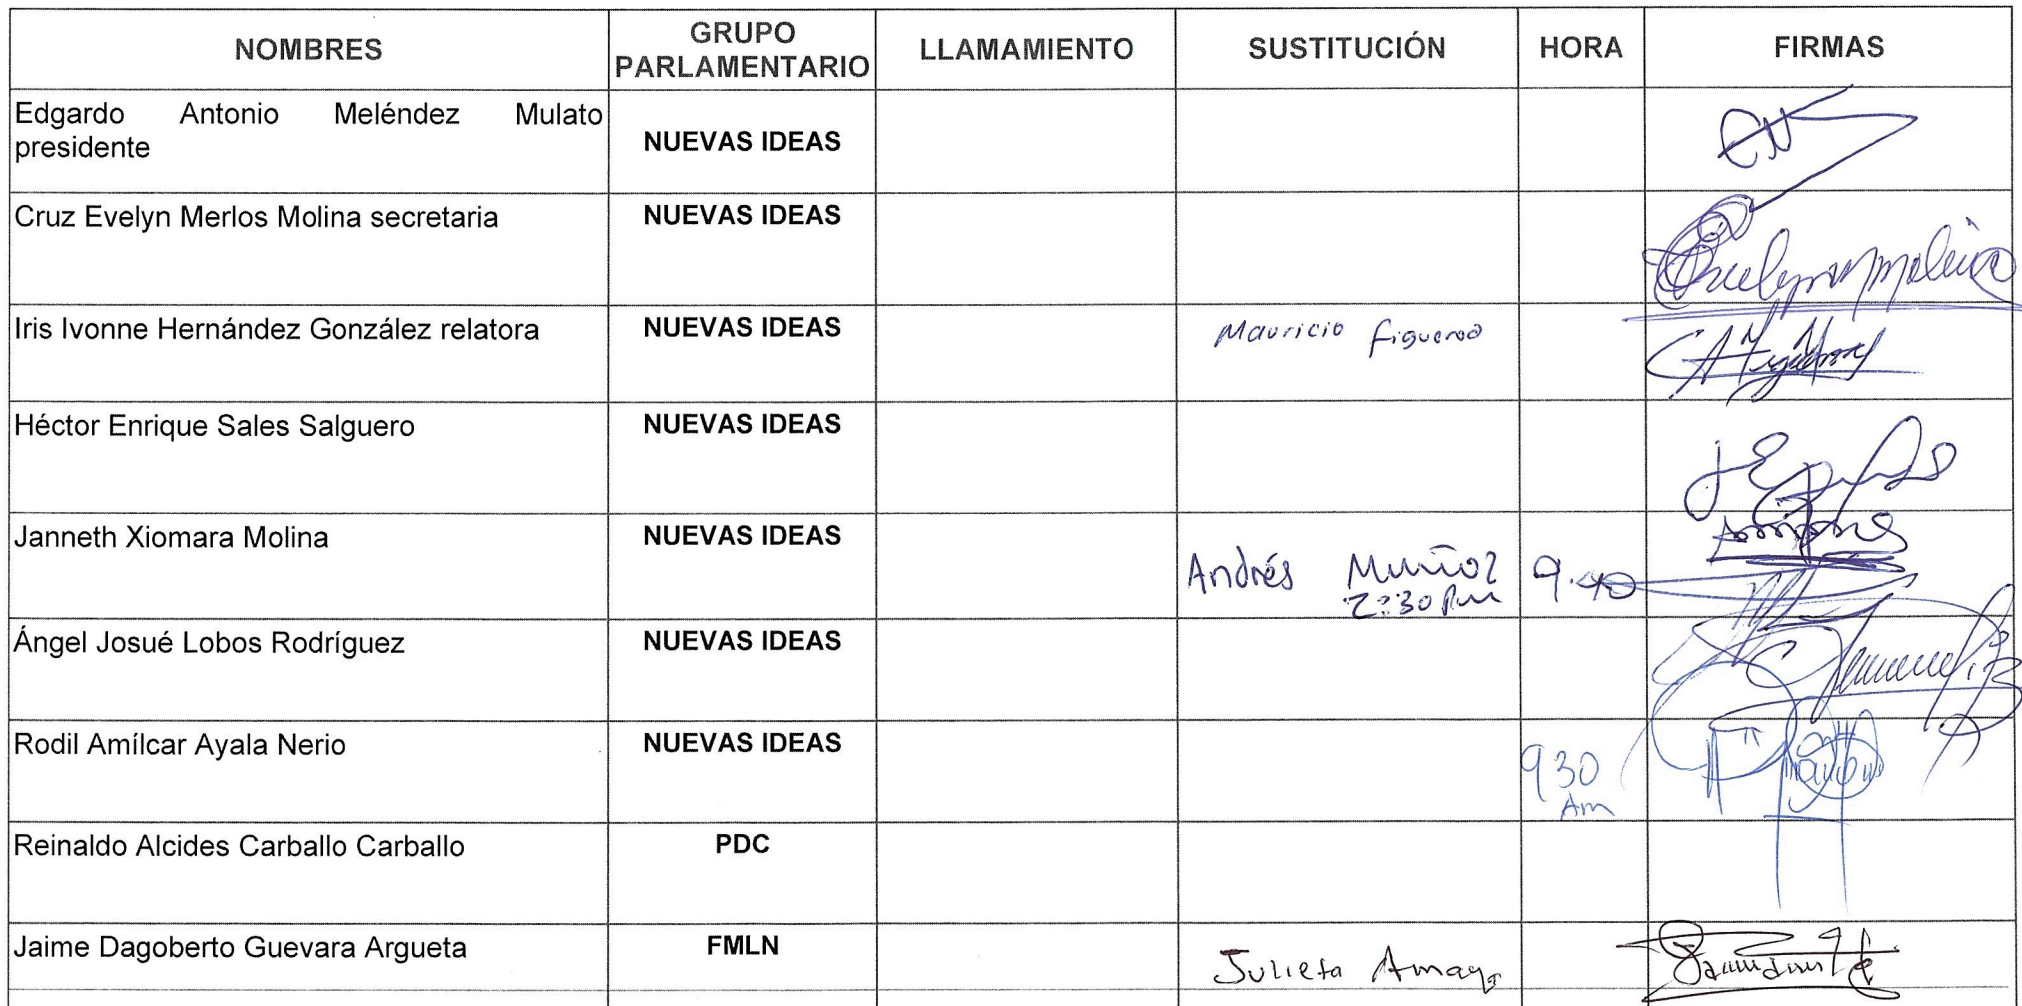 NOMBRES GRUPO PARLAMENTARIO LLAMAMIENTO SUSTITUCIÓN HORA FIRMAS
Edgardo Antonio Meléndez Mulato
presidente NUEVAS IDEAS
Cruz Evelyn Merlos Molina secretaria NUEVAS IDEAS
Iris Ivonne Hernández González relatora NUEVAS IDEAS Mauricio Figueroa
Héctor Enrique Sales Salguero NUEVAS IDEAS
Janneth Xiomara Molina NUEVAS IDEAS Andrés Muñoz 9:40
2:30 Pm
Ángel Josué Lobos Rodríguez NUEVAS IDEAS
Rodil Amílcar Ayala Nerio NUEVAS IDEAS 930
Am
Reinaldo Alcides Carballo Carballo PDC
Jaime Dagoberto Guevara Argueta FMLN Julieta Amaya